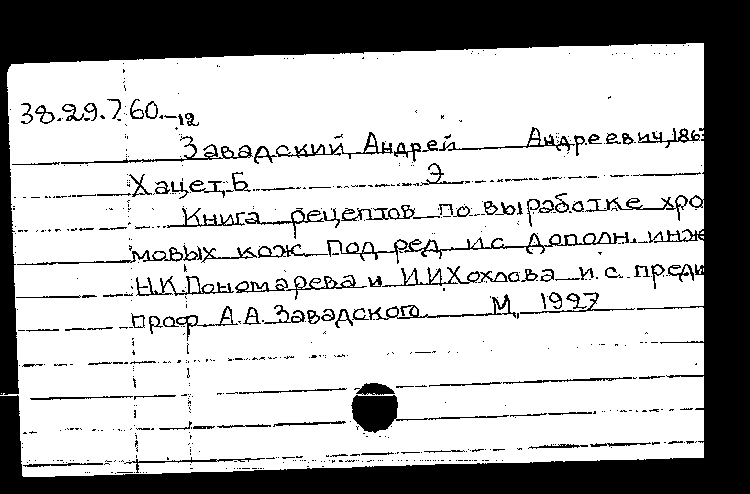 38.29.7.60.-12
Завадский, Андрей Андреевич, 186
Хацет, Б Э
Книга рецептов по выработке хро
мовых кож. Под ред. и с дополн. инж
Н.К.Пономарева и И.И.Хохлова и с. преди
проф. А.А.Завадского. М., 1927